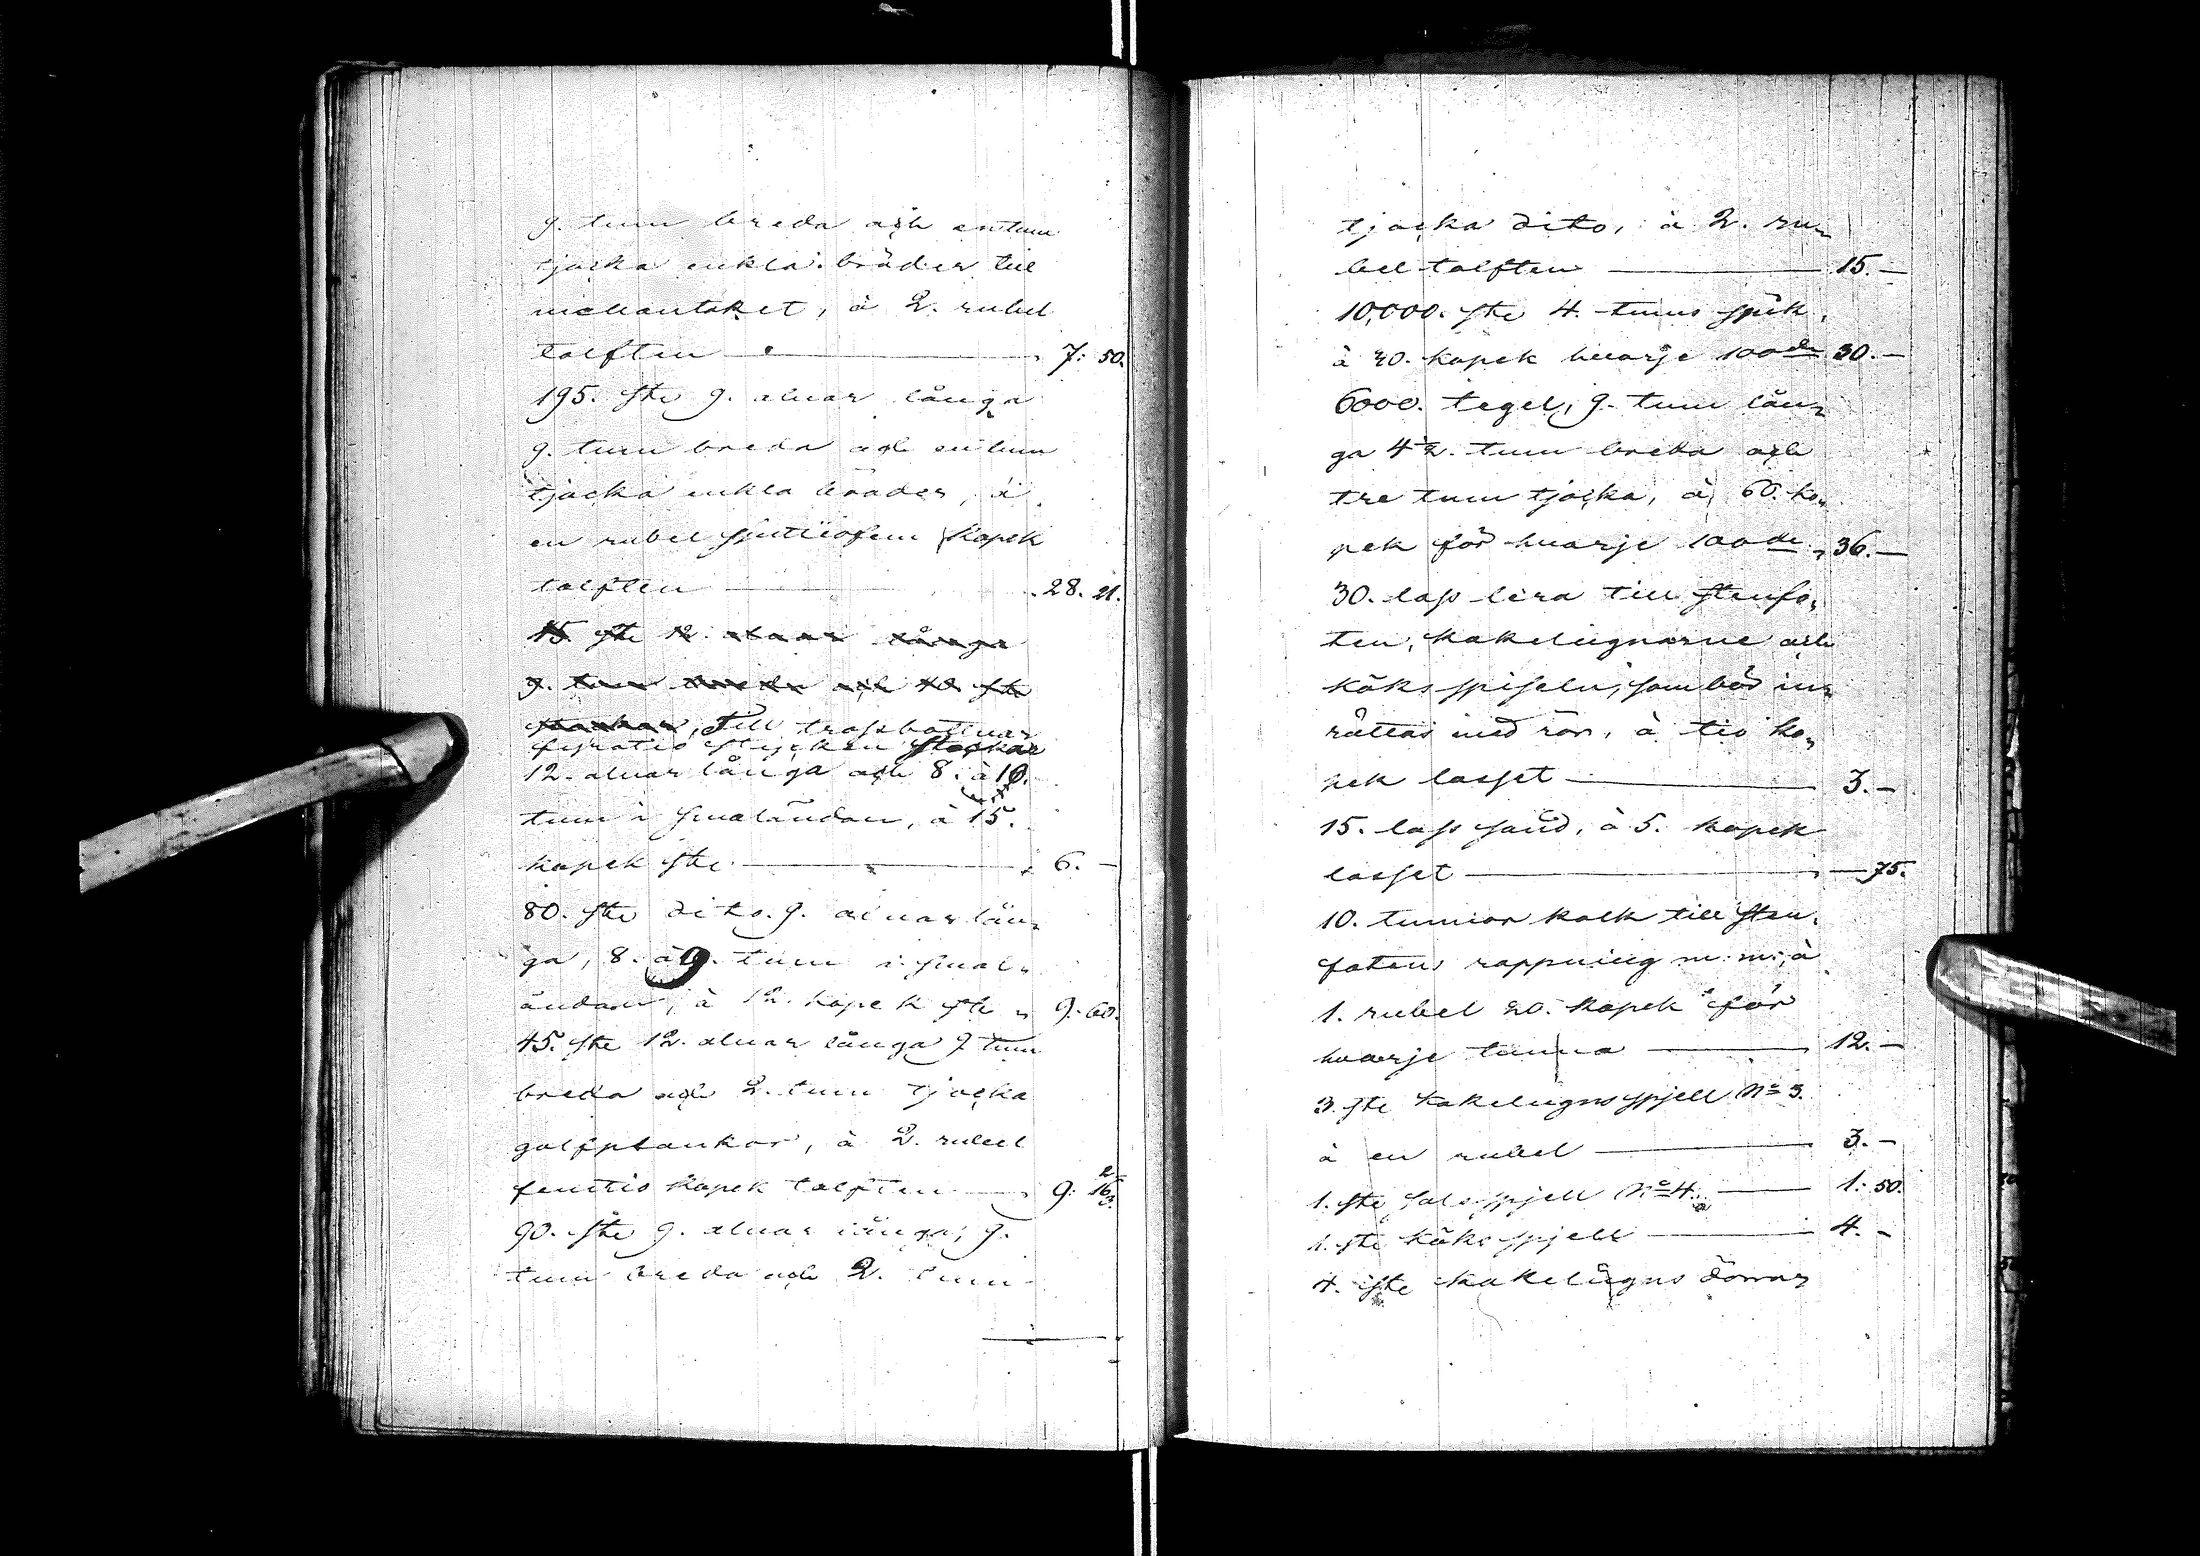 9. tum breda och entum
tjocka enkla bräder till
mellantaket, à 2. rubel
tolften 7: 50.
195. ste 9. alnar långa
9. tum breda och entum
tjocka enkla bräder, à
en rubel sjuttiofem kopek
tolften 28. 21.
15 ste 12. alnar långa
9. tum breda och 40 ste
stockar, Till trossbottnar
fyratio stycken stockar
12. alnar långa och 8. à 10.
tum i smaländan, à 15.
kopek ste 6. —
80. ste dito 9. alnar lån-
ga, 8. à 9. tum i smal-
ändan, à 12. kopek ste 9. 60.
45. ste 12. alnar långa 9 tum
breda och 2. tum tjocka
golfplankor, à 2. rubel
femtio kopek tolften 9: 16 2/3
90. ste 9. alnar långa, 9.
tum breda och 2. tum
tjocka dito, à 2. ru-
bel tolften 15. —
10,000. ste 4. tums spik,
à 30. kopek hvarje 100de 30. —
6000. tegel, 9. tum lån-
ga 4 1/2. tum breda och
tre tum tjocka, à 60. ko-
pek för hvarje 100de 36. —
30. lass lera till stenfo-
ten, kakelugnarne och
köksspiseln, som bör in-
rättas med rör, à tio ko-
pek lasset 3. —
15. lass sand, à 5. kopek
lasset — 75.
10. tunnor kalk till sten-
fotens rappning m. m., à
1. rubel 20. kopek för
hvarje tunna 12. —
3. ste kakelugnsspjell No 3.
à en rubel 3. —
1. ste salsspjell No 4. 1: 50.
1. ste köksspjell 4. —
4. ste kakelugns dörrar